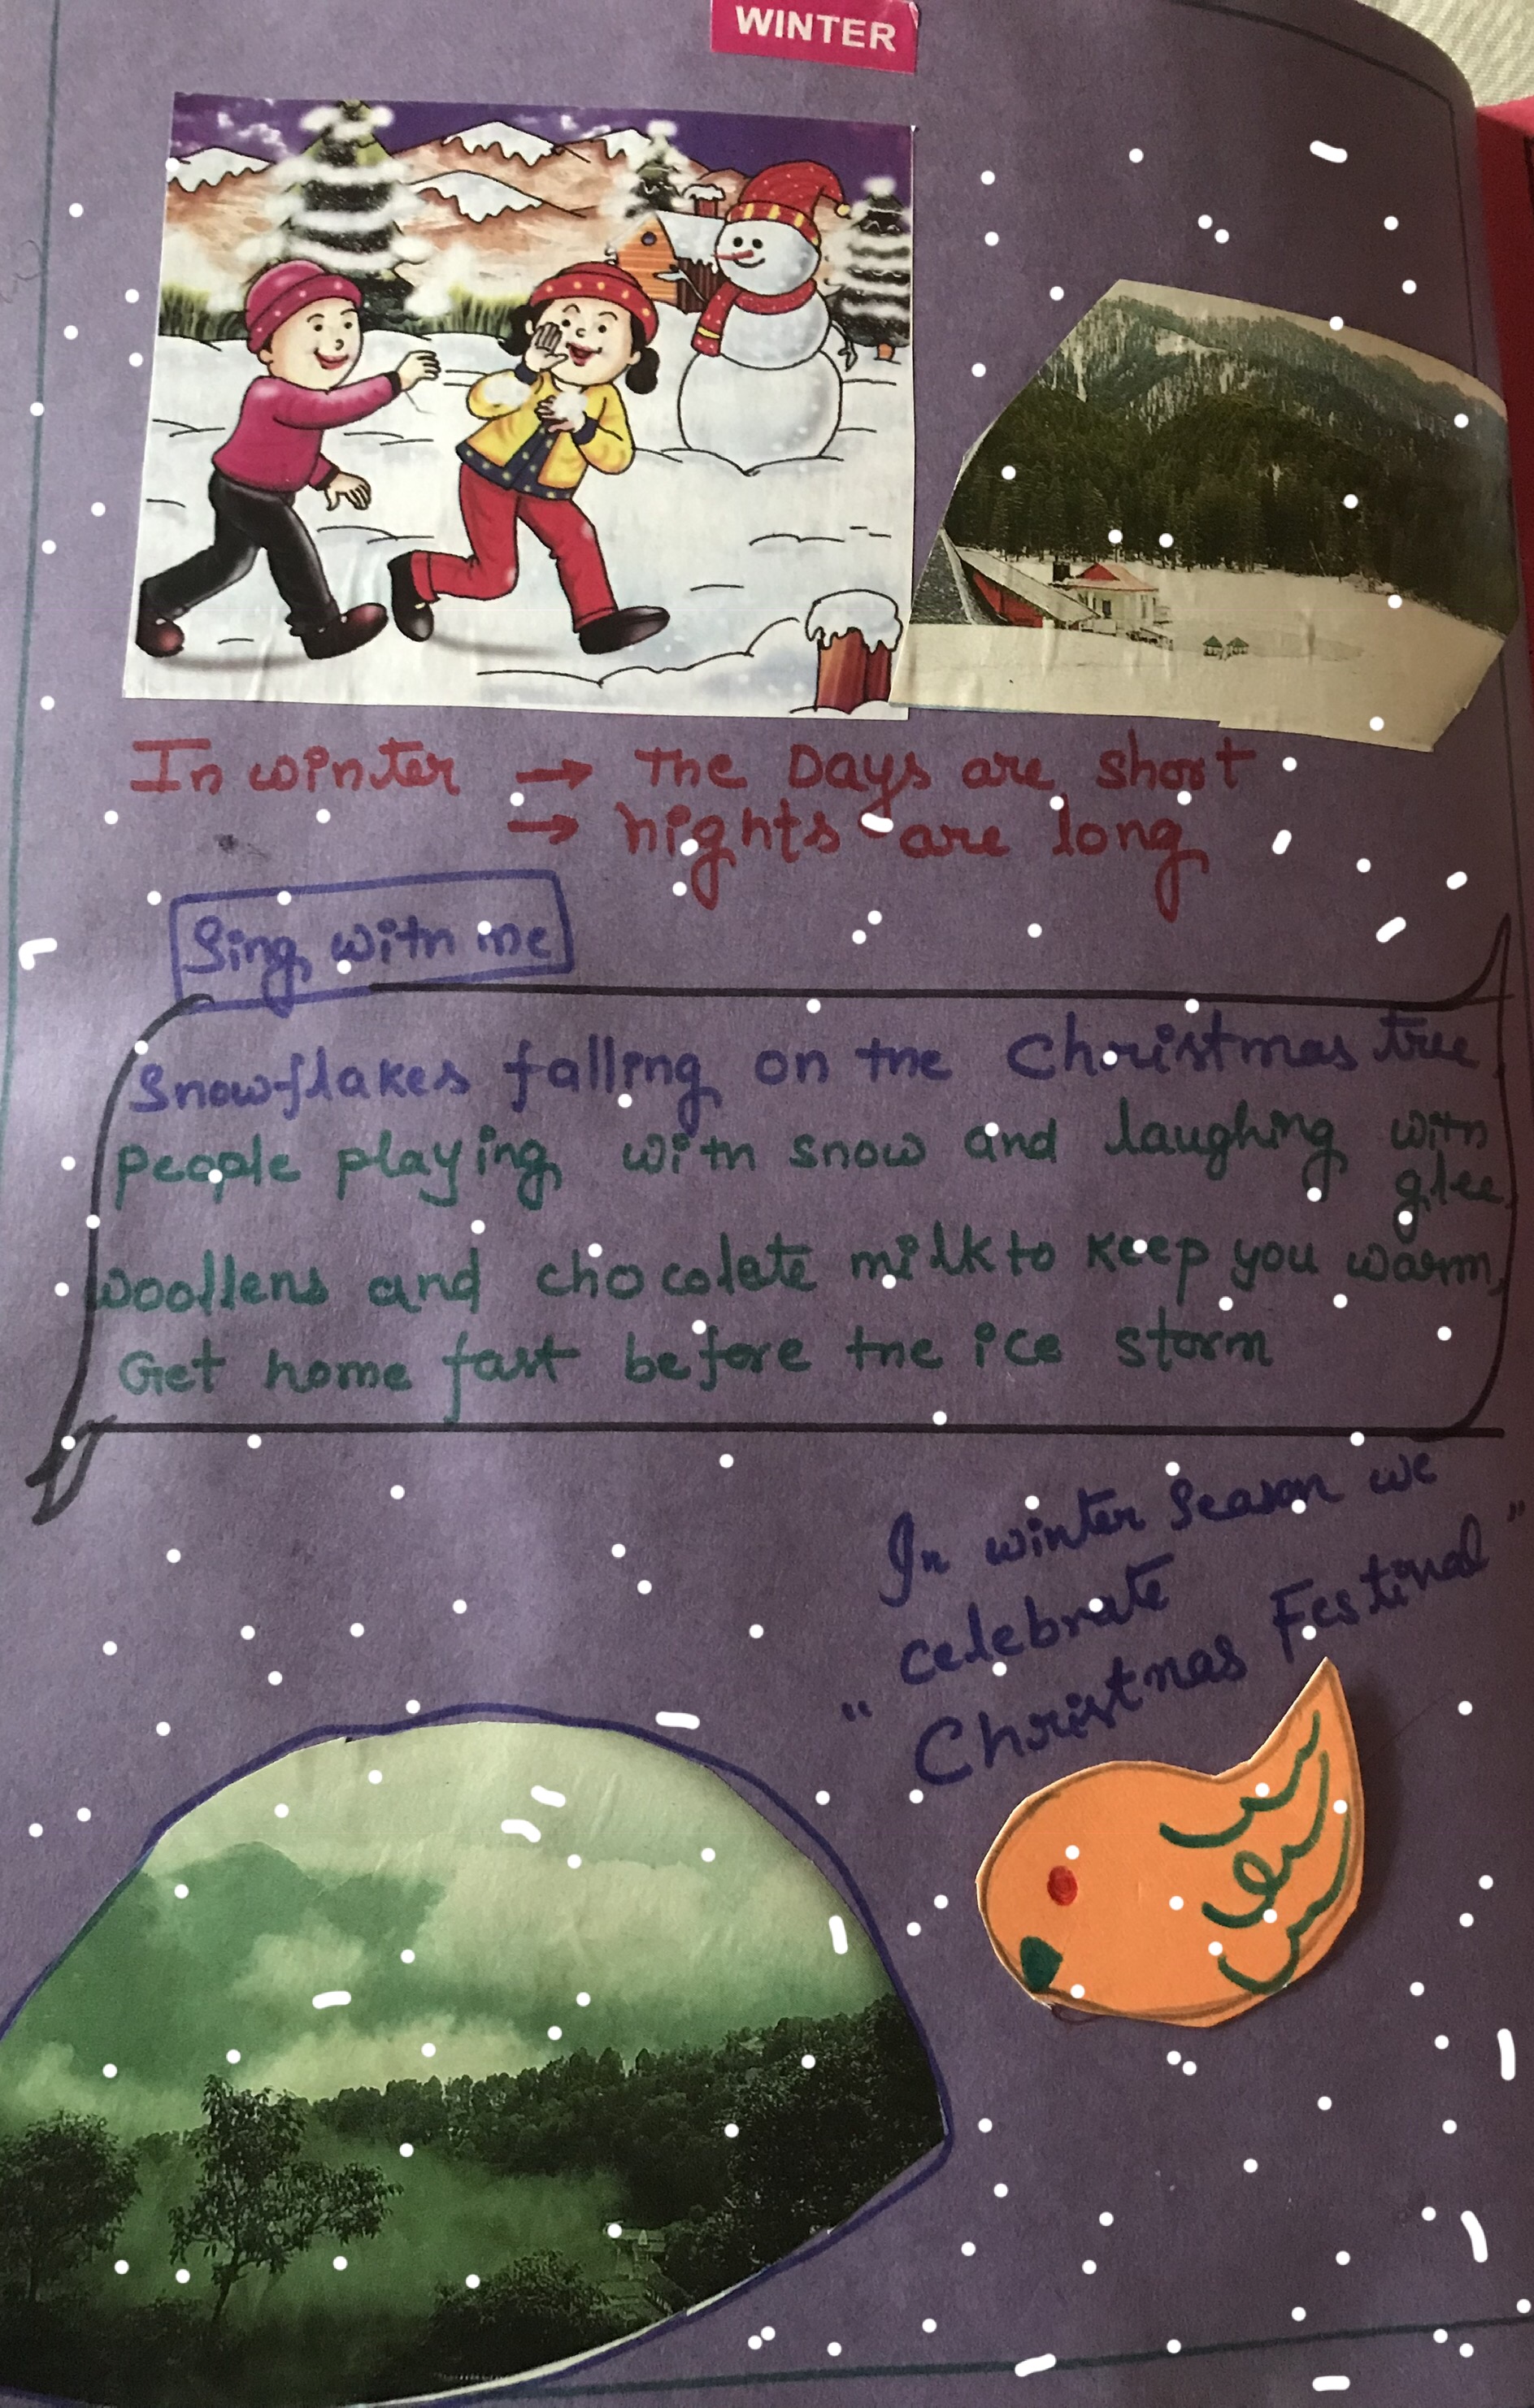 WINTER
In winter → The Days are short
→ nights are long
Sing with me
Snowflakes falling on the Christmas tree
people playing with snow and laughing with
glee,
woollens and chocolate milk to keep you warm,
Get home fast before the ice storm
In winter season we
celebrate
" Christmas Festival "